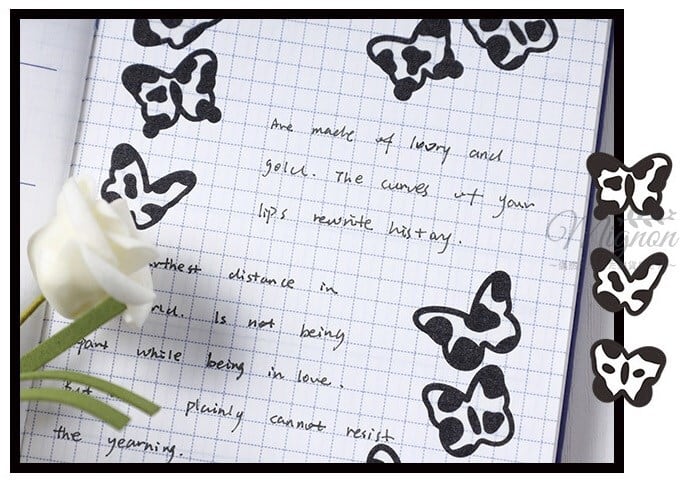 Are made of Ivory and
gold. The curves of your
lips rewrite history.
distance in
Is not being
while being in love.
but plainly cannot resist
the yearning.
Mignon